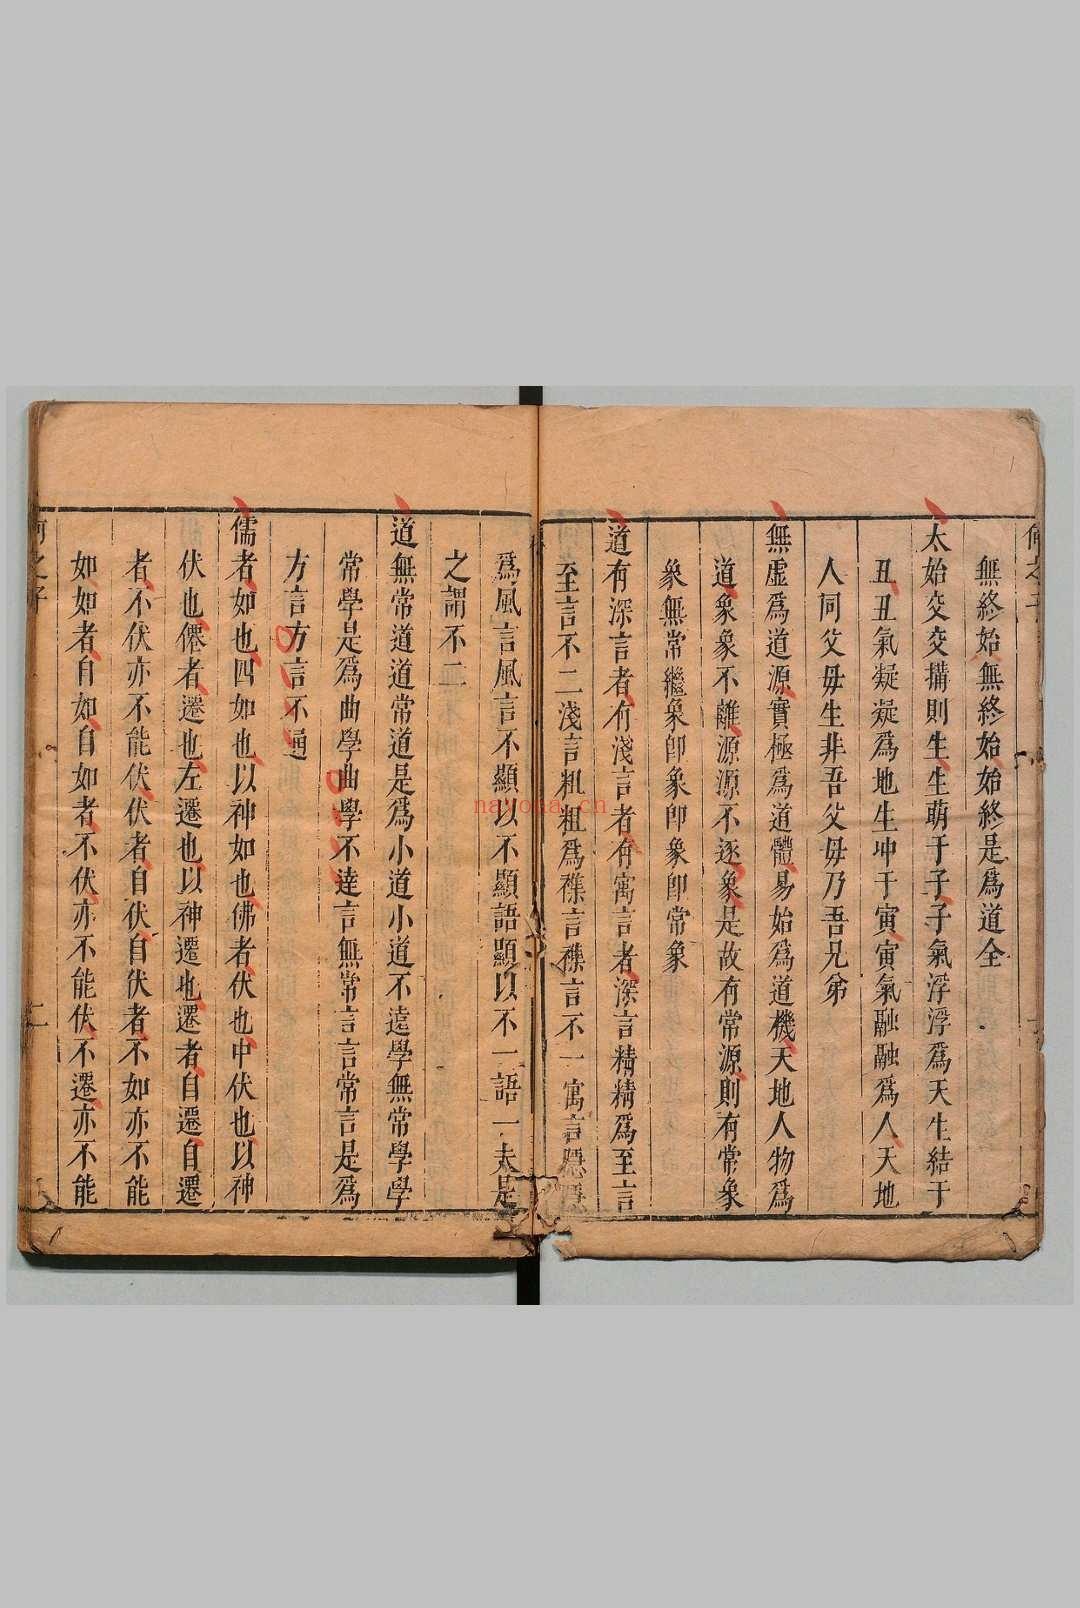 無終始無終始始終是爲道全
太始交交搆則生生萌于子子氣浮浮爲天生結于
丑丑氣凝凝爲地生冲于寅寅氣融融爲人天地
人同父母生非吾父母乃吾兄弟
無虛爲道源實極爲道體易始爲道機天地人物爲
道象象不離源源不逐象是故有常源則有常象
象無常繼象卽象卽象卽常象
道有深言者有淺言者有寓言者深言精精爲至言
至言不二淺言粗粗爲襍言襍言不一寓言隱隱
爲風言風言不顯以不顯語顯以不一語一夫是
之謂不二
道無常道道常道是爲小道小道不遠學無常學學
常學是爲曲學曲學不達言無常言言常言是爲
方言方言不通
儒者如也四如也以神如也佛者伏也中伏也以神
伏也僊者遷也左遷也以神遷也遷者自遷自遷
者不伏亦不能伏伏者自伏自伏者不如亦不能
如如者自如自如者不伏亦不能伏不遷亦不能
何之子
二
nayona.cn